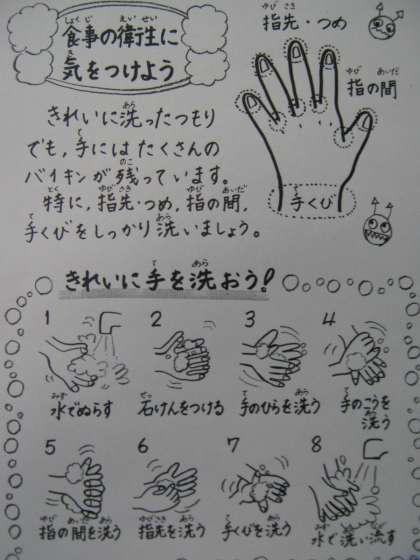 食事の衛生に
気をつけよう
指先・つめ
指の間
手くび
きれいに洗ったつもり
でも,手にはたくさんの
バイキンが残っています。
特に,指先・つめ,指の間,
手くびをしっかり洗いましょう。
きれいに手を洗おう!
1 2 3 4
水でぬらす 石けんをつける 手のひらを洗う 手のこうを
洗う
5 6 7 8
指の間を洗う 指先を洗う 手くびを洗う 水で洗い流す